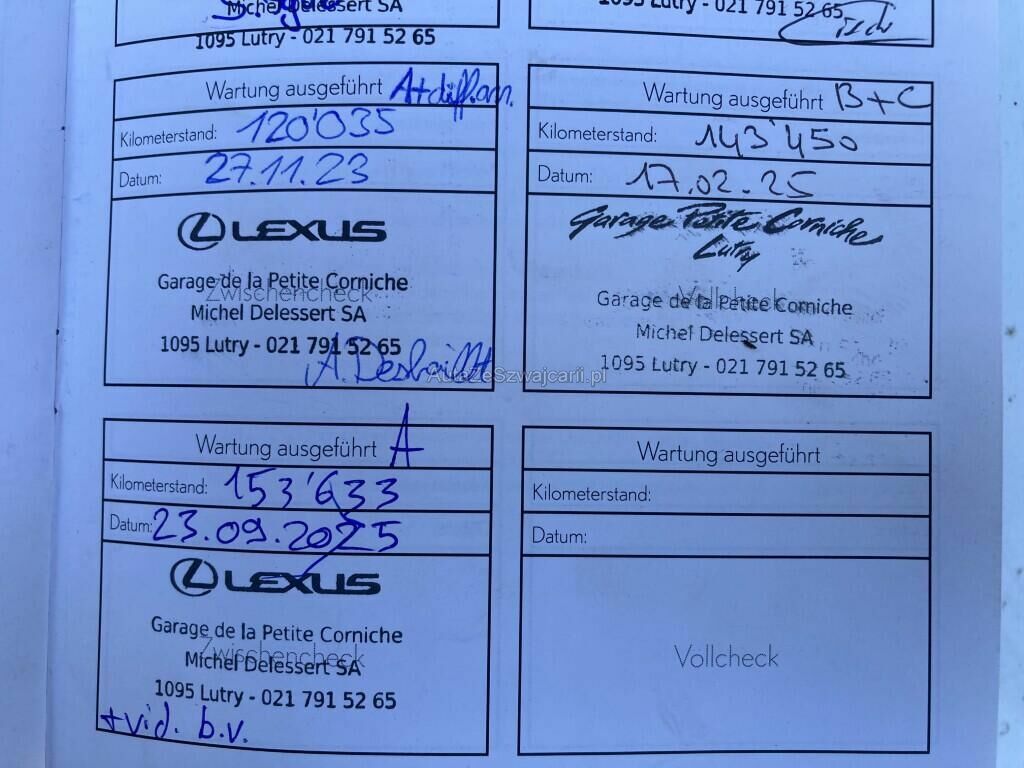 Michel Delessert SA
1095 Lutry - 021 791 52 65
1095 Lutry - 021 791 52 65
Wartung ausgeführt A+diff.arr.
Kilometerstand: 120'035
Datum: 27.11.23
LEXUS
Garage de la Petite Corniche
Zwischencheck
Michel Delessert SA
1095 Lutry - 021 791 52 65
Wartung ausgeführt B+C
Kilometerstand: 143'450
Datum: 17.02.25
Garage Petite Corniche
Lutry
Garage de la Petite Corniche
Vollcheck
Michel Delessert SA
1095 Lutry - 021 791 52 65
AutaZeSzwajcarii.pl
Wartung ausgeführt A
Kilometerstand: 153'633
Datum: 23.09.2025
LEXUS
Garage de la Petite Corniche
Zwischencheck
Michel Delessert SA
1095 Lutry - 021 791 52 65
+vid. b.v.
Wartung ausgeführt
Kilometerstand:
Datum:
Vollcheck